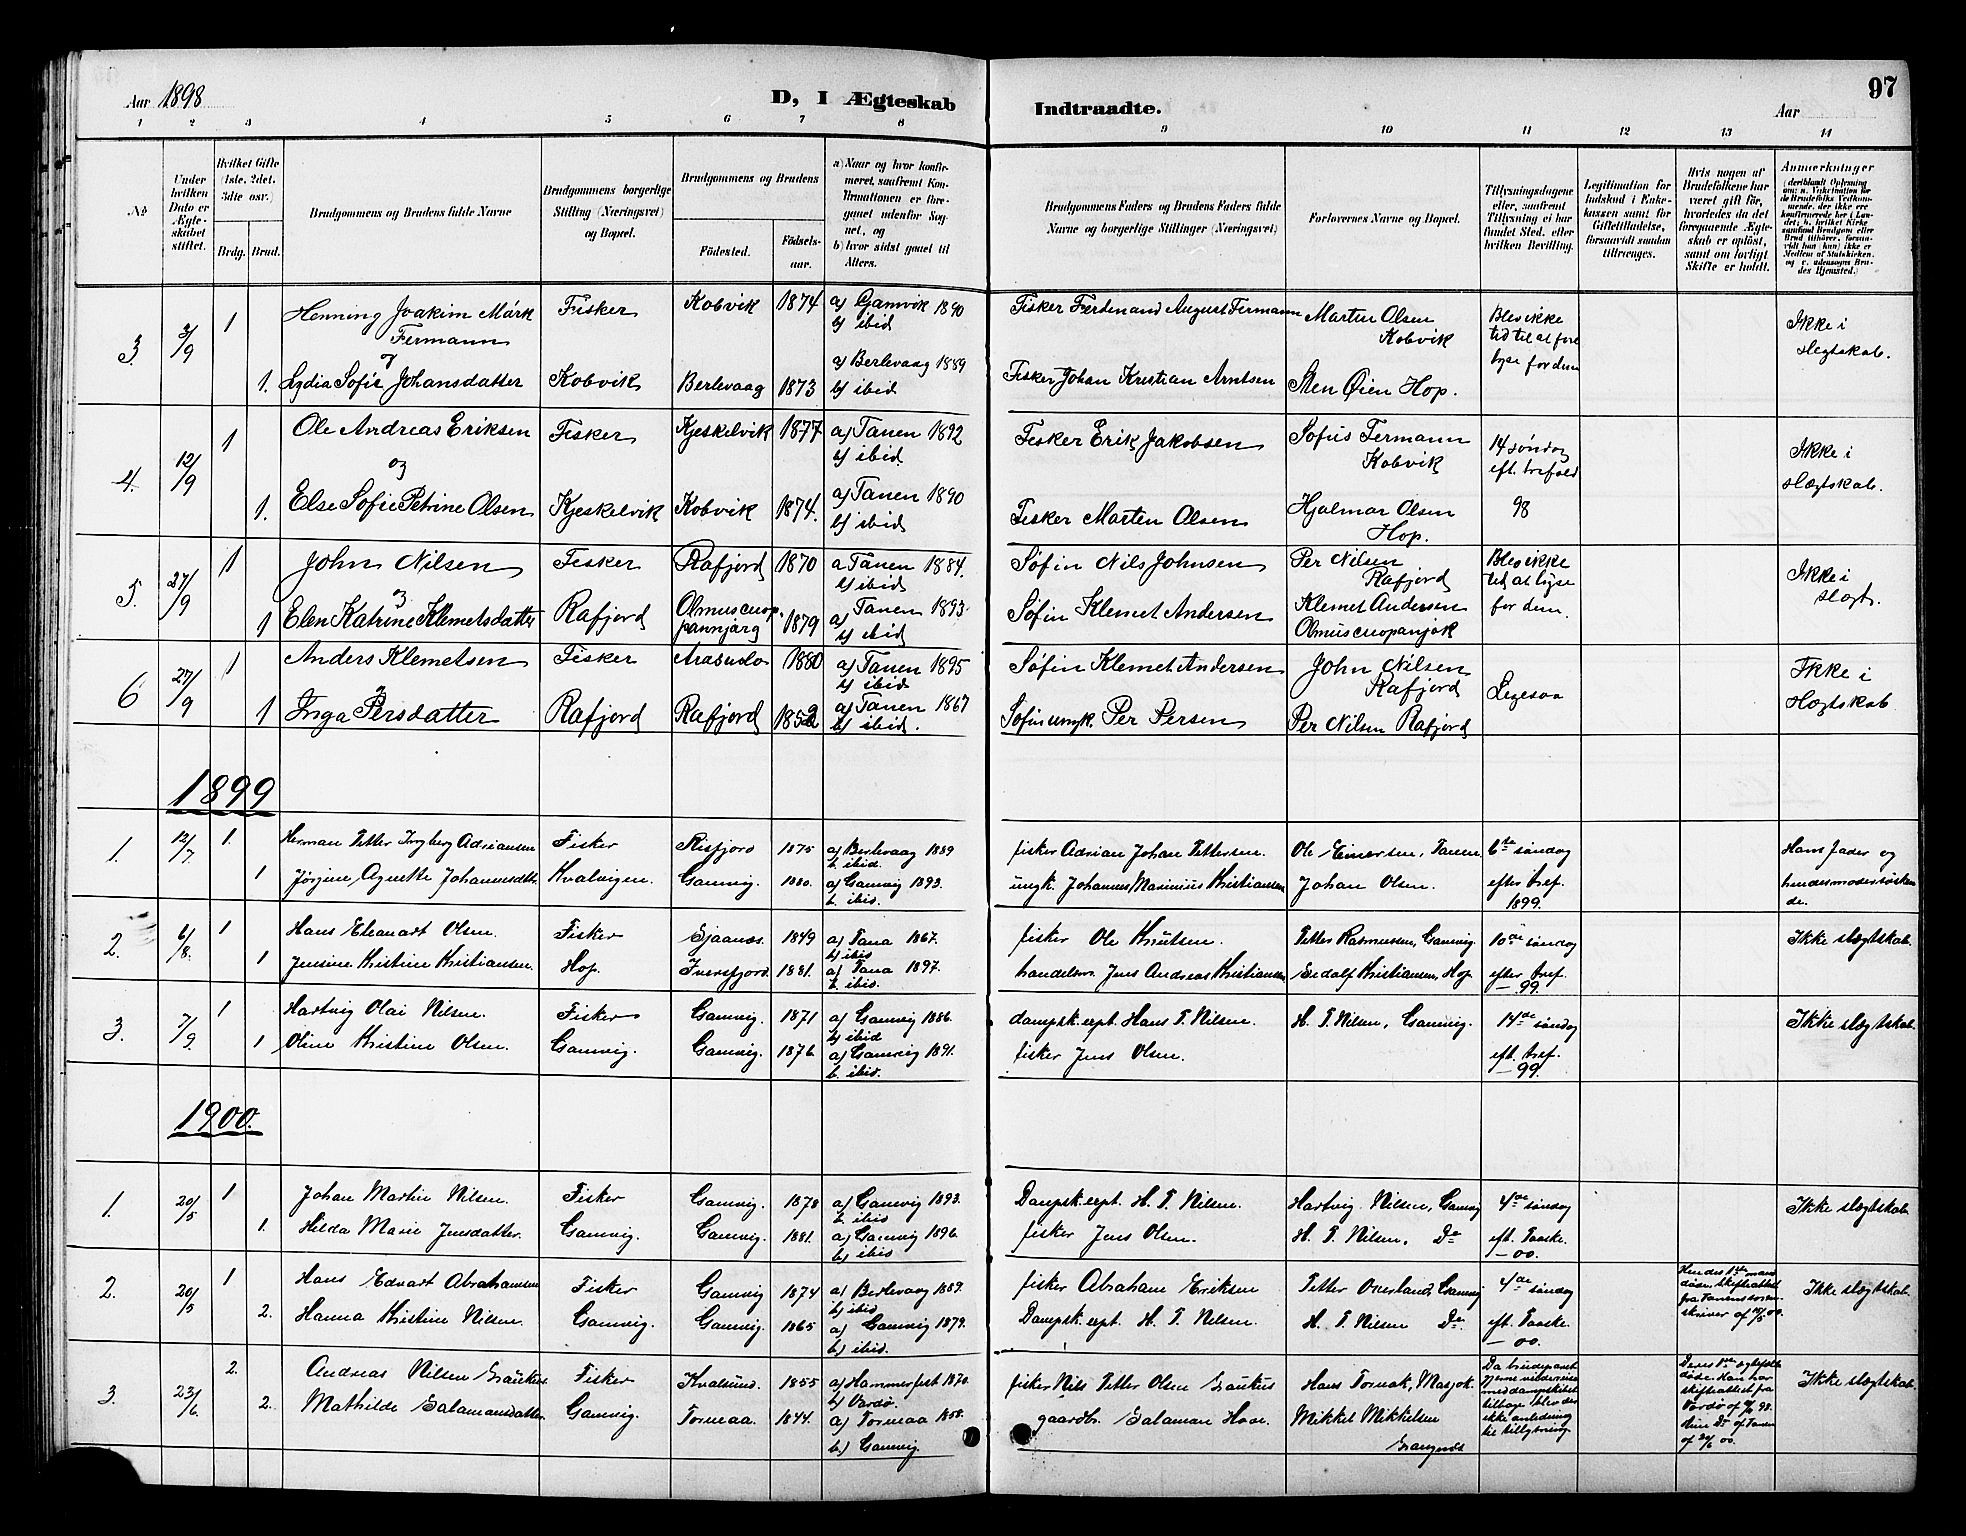 Aar 1898
D, I Ægteskab
Indtraadte.
Aar
97
1 2 3 4 5 6 7 8 9 10 11 12 13 14
No
Under hvilken Dato er Ægteskabet stiftet.
Hvilket Gifte (1ste, 2det, 3die osv.)
Brdg. Brud.
Brudgommens og Brudens fulde Navne
Brudgommens borgerlige Stilling (Næringsvei) og Bopæl.
Brudgommens og Brudens
Fødested.
Fødselsaar.
a) Naar og hvor konfirmeret, saafremt Konfirmationen er foregaaet udenfor Sognet, og
b) hvor sidst gaaet til Alters.
Brudgommens Faders og Brudens Faders fulde Navne og borgerlige Stillinger (Næringsvei)
Forlovernes Navne og Bopæl.
Tillysningsdagene eller, saafremt Tillysning ei har fundet Sted, efter hvilken Bevilling.
Legitimation for Indskud i Enkekassen samt for Giftetilladelse, forsaavidt saadan tiltrænges.
Hvis nogen af Brudefolkene har været gift før, hvorledes da det foregaaende Ægteskab er opløst, samt om lovligt Skifte er holdt.
Anmerkninger
3. 3/9 1 Henning Joakim Mørk Fermann Fisker Kobvik 1874 a) Gamvik 1890 b) ibid Fisker Ferdinand August Fermann Marten Olsen Kobvik Blev ikke tid til at forelyse for dem Ikke i slegtskab.
og
1. Lydia Sofie Johansdatter Kobvik Berlevaag 1873 a) Berlevaag 1889 b) ibid Fisker Johan Kristian Arntsen Sten Øien Hop.
4. 12/9 1 Ole Andreas Eriksen Fisker Kjeskelvik 1877 a) Tanen 1892 b) ibid. Fisker Erik Jakobsen Sofus Fermann Kobvik 14 søndag eft. trefold 98 Ikke i slægtskab.
og
1. Else Sofie Petrine Olsen Kjeskelvik Kobvik 1874. a) Tanen 1890 b) ibid Fisker Marten Olsen Hjalmar Olsen Hop.
5. 27/9 1 John Nilsen Fisker Rafjord 1870 a Tanen 1884. b) ibid Søfin Nils Johnsen Per Nilsen Rafjord Blev ikke tid at lyse for dem. Ikke i slegt.
og
1 Elen Katrine Klemetsdatter Rafjord 1879 a) Tanen 1893 b) ibid Søfin Klemet Andersen Klemet Andersen
6 27/9 1 Anders Klemetsen Fisker 1880 a) Tanen 1895 b) ibid Søfin Klemet Andersen John Nilsen Rafjord Ikke i Slægtskab
og
1 Inga Persdatter Rafjord Rafjord 1852 a) Tanen 1867 b) ibid. Søfin ungk. Per Persen Per Nilsen Rafjord
1899
1. 12/7. 1. Herman Petter Ingberg Adriansen Fisker Risfjord 1875 a) Berlevaag 1889 b. ibid. fisker Adrian Johan Pettersen. Ole Einersen, Tanen. 6te søndag efter tref. 1899. Hans fader og hendes moder søskende.
1 Jørgine Agnette Johannesdtr. Kvalvigen. Gamvig. 1880. a) Gamvig 1893. b. ibid. ungk. Johannes Marinius Kristiansen Johan Olsen.
2. 6/8. 1 Hans Eleanart Olsen. Fisker Sjaanes. 1849 a) Tana 1867. b) ibid fisker Ole Knutsen. Petter Rasmussen, Gamvig. 10de søndag efter tref. — 99. Ikke slægtskab.
1 Jensine Kristine Kristiansen. Hop. Iversfjord. 1881. a) Tana 1897. b. ibid. handelsm. Jens Andreas Kristiansen Endolf Kristiansen, Hop
3. 7/9. 1 Hartvig Olai Nilsen. Fisker Gamvig. 1871 a) Gamvig 1886. b) ibid dampsk.expt. Hans P. Nilsen. H. P. Nilsen, Gamvig. 14de søndag eft. tref. — 99. Ikke slægtskab.
1 Oline Kristine Olsen. Gamvig. Gamvig. 1876. a) Gamvig 1891. b. ibid. fisker Jens Olsen.
1900.
1. 20/5 1 Johan Martin Nilsen. Fisker Gamvig. 1878 a) Gamvig 1893. b. ibid Dampsk.expt. H. P. Nilsen. Hartvig Nilsen, Gamvig 4de søndag eft. Paaske. — 00. Ikke slægtskab.
1. Hilda Marie Jensdatter. Gamvig. Gamvig. 1881. a) Gamvig 1896. b) ibid fisker Jens Olsen. H. P. Nilsen, Do
2. 20/5 1 Hans Edvart Abrahamsen Fisker Gamvig 1874 a) Berlevaag 1889. b) ibid fisker Abraham Eriksen Petter Overland, Gamvig 4de søndag eft. Paaske. — 00. Hendes 1ste mand død, Skifteattest fra Tanens sorenskriver af 19/5 00. Ikke slægtskab.
2. Hanna Kristine Nilsen. Gamvig. Gamvig. 1865 a) Gamvig 1879. b) ibid. Dampsk.expt. H. P. Nilsen. H. P. Nilsen Do.
3. 23/6. 2. Andreas Nilsen Fisker Kvalsund. 1855 a) Hammerfest 1870. b) Vardø. fisker Nils Petter Olsen Hans Tornak, Masjok. Ikke slægtskab
2. Mathilde Salamansdatter Gamvig. 1844. 1858. b) Gamvig. gaardbr. Salaman Mikkel Mikkelsen